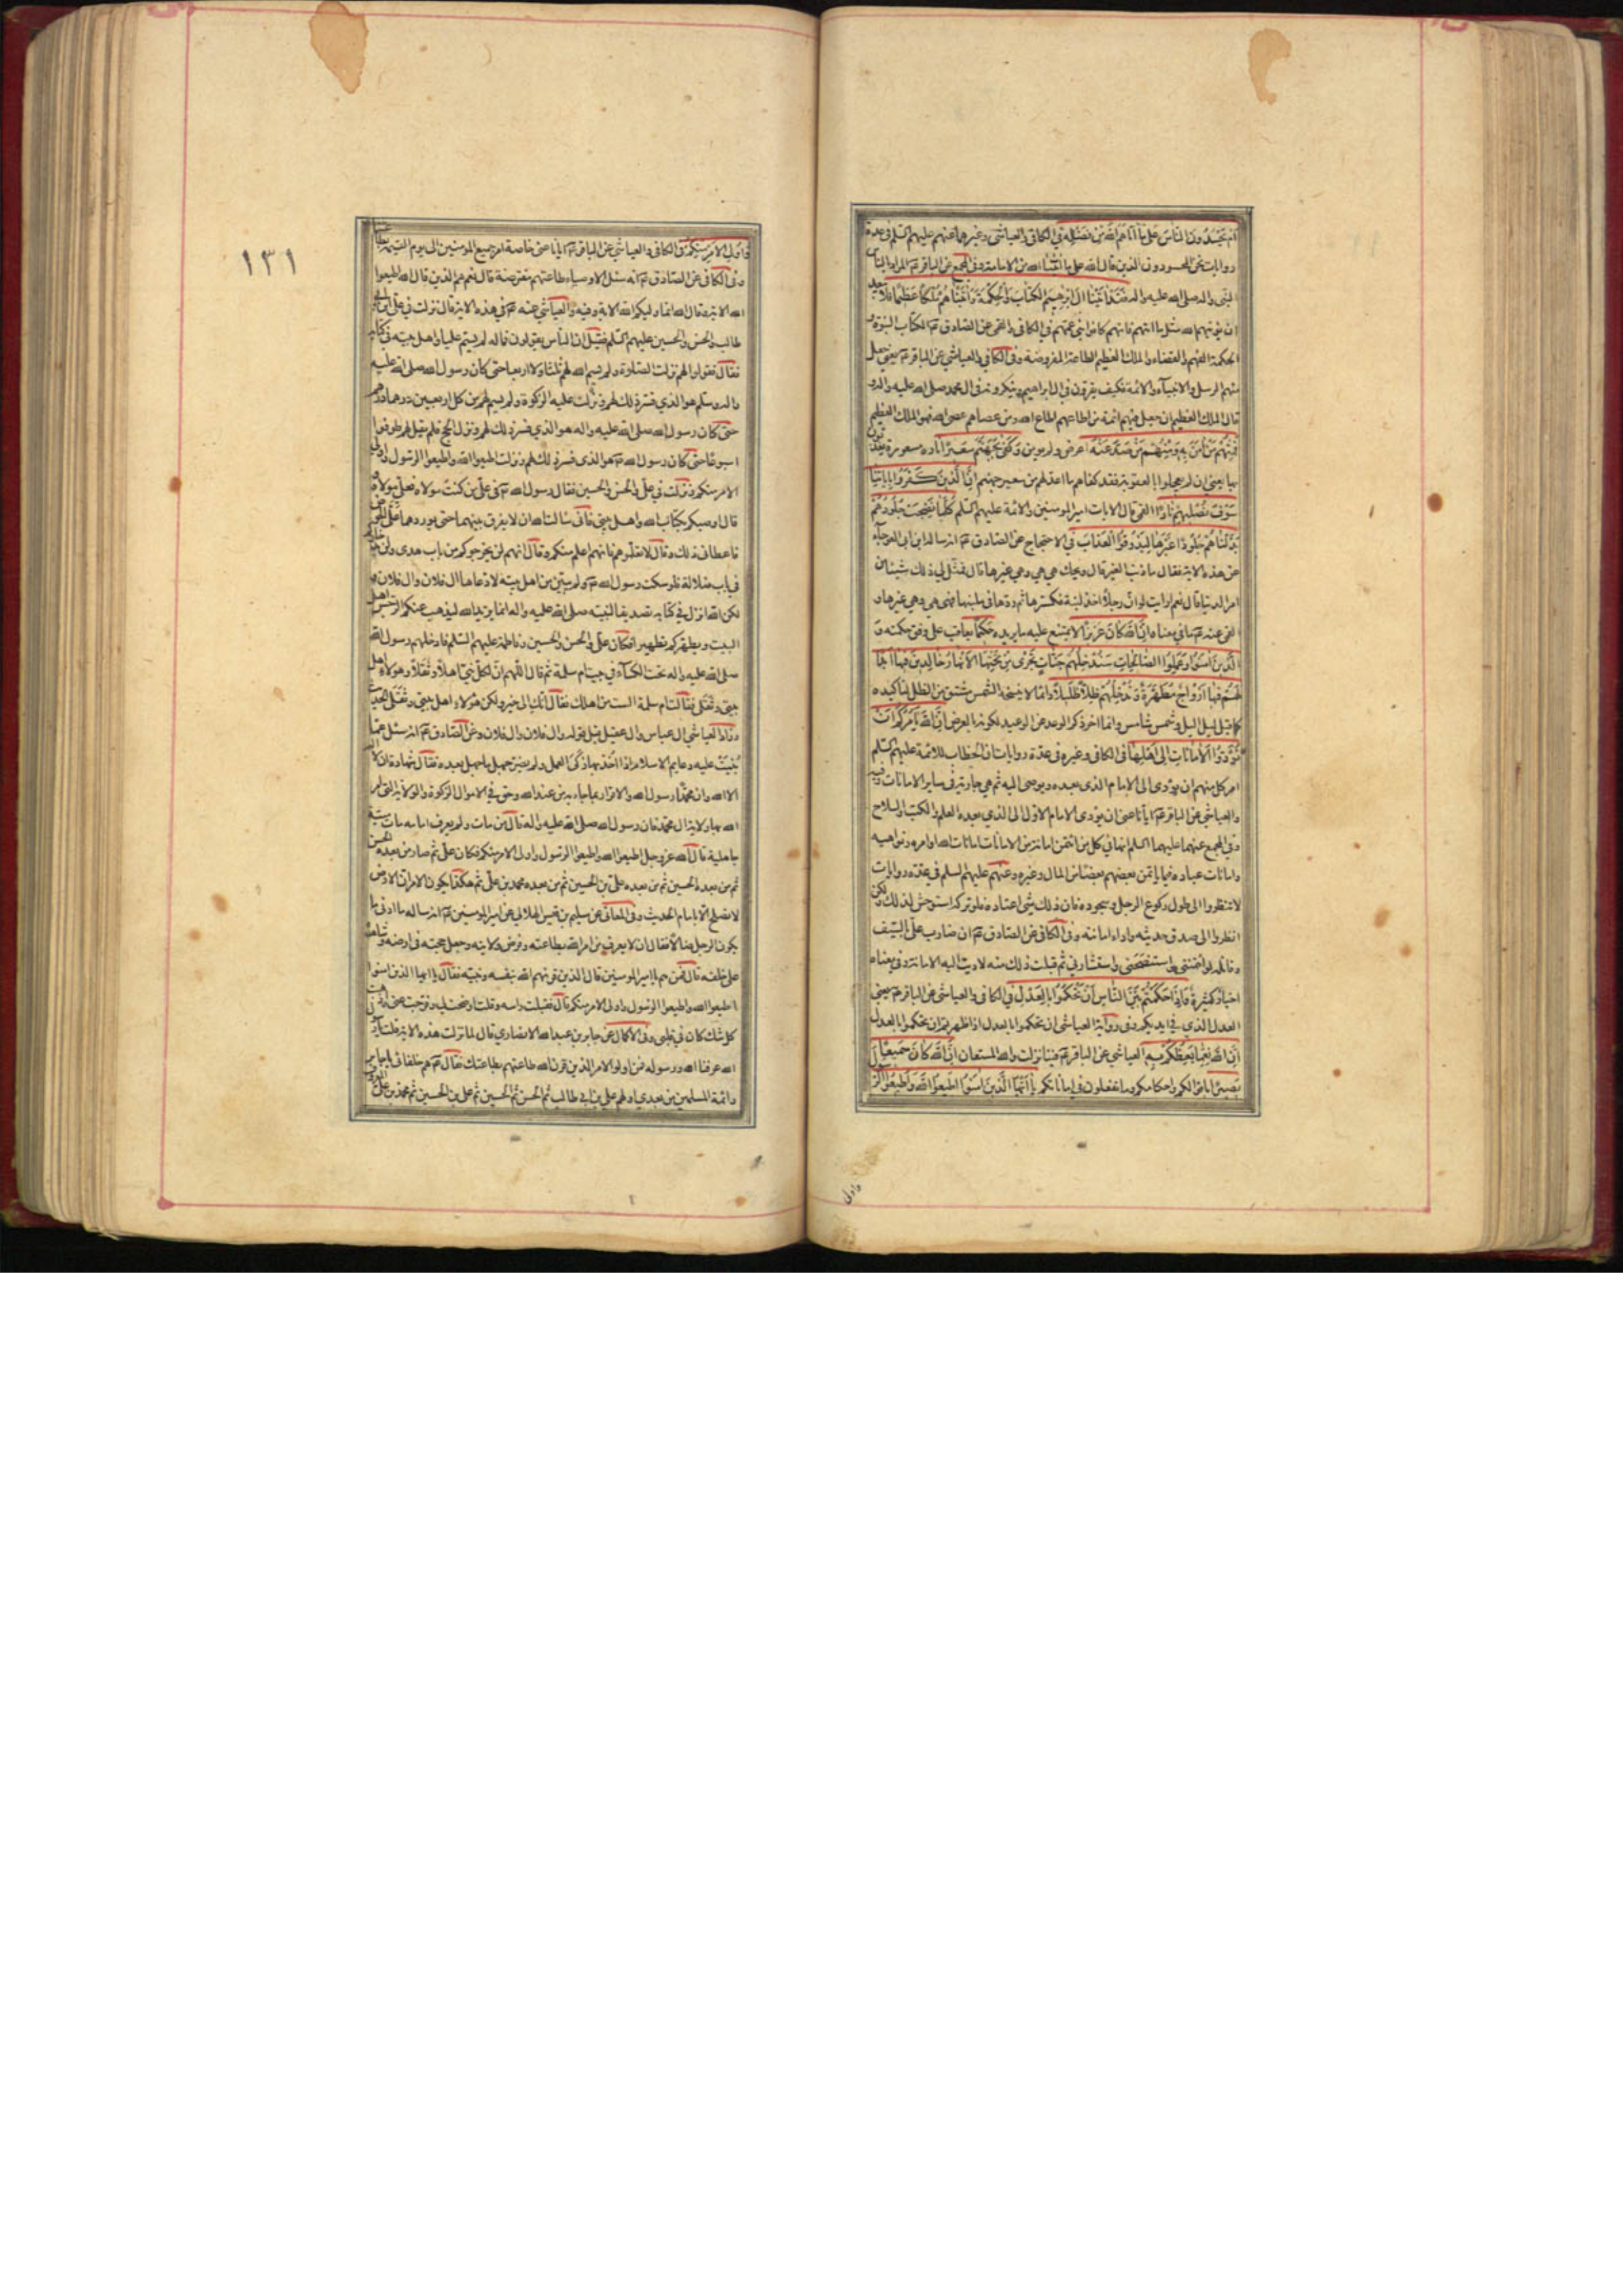 ام يحسدون الناس على ما اتاهم الله من فضله في الكافي والعياشي وغيرهما عنهم عليهم السلم في عدة
روايات نحن المحسودون الذين قال الله على ما اتانا الله من الامامة وفي المجمع عن الباقر المراد بالناس
النبي واله صلى الله عليه واله فقد اتينا ال ابرهيم الكتاب والحكمة واتيناهم ملكا عظيما فلا يبعد
ان يؤتيهم الله مثل ما اتيهم فانهم كانوا بني عمهم في الكافي والقمي عن الصادق الكتاب النبوة و
الحكمة الفهم والقضاء والملك العظيم الطاعة المفروضة وفي الكافي والعياشي عن الباقر يعني جعل
منهم الرسل والانبياء والائمة فكيف يقرون في ال ابراهيم وينكرونه في ال محمد صلى الله عليه واله و
قال الملك العظيم ان جعل فيهم ائمة من اطاعهم اطاع الله ومن عصاهم عصى الله فهو الملك العظيم
فمنهم من امن به ومنهم من صد عنه اعرض ولم يؤمن وكفى بجهنم سعيرا نارا مسعورة يعذبون
بها يعني ان لم يعجلوا بالعقوبة فقد كفاهم ما اعد لهم من سعير جهنم ان الذين كفروا باياتنا
سوف نصليهم نارا القمي قال الايات امير المؤمنين والائمة عليهم السلم كلما نضجت جلودهم
بدلناهم جلودا غيرها ليذوقوا العذاب في الاحتجاج عن الصادق انه ساله ابن ابي العوجاء
عن هذه الاية فقال ما ذنب الغير قال ويحك هي هي وهي غيرها قال فمثل لي ذلك شيئا من
امر الدنيا قال نعم ارايت لو ان رجلا اخذ لبنة فكسرها ثم ردها في ملبنها فهي هي وهي غيرها و
القمي عنه ما في معناه ان الله كان عزيزا لا يمتنع عليه ما يريده حكيما يعاقب على وفق حكمته و
الذين امنوا وعملوا الصالحات سندخلهم جنات تجري من تحتها الانهار خالدين فيها ابدا
لهم فيها ازواج مطهرة وندخلهم ظلا ظليلا دائما لا ينسخه الشمس مشتق من الظل لتاكيده
كما قيل ليل اليل وشمس شامس وانما اخر ذكر الوعد عن الوعيد لكونه بالعرض ان الله يامركم ان
تؤدوا الامانات الى اهلها في الكافي وغيره في عدة روايات ان الخطاب للائمة عليهم السلم
امر كل منهم ان يؤدي الى الامام الذي بعده ويوصي اليه ثم هي جارية في ساير الامانات وفيه
والعياشي عن الباقر ايانا عنى ان يؤدي الامام الاول الى الذي بعده العلم والكتب والسلاح
وفي المجمع عنهما عليهما السلم انها في كل من ائتمن امانة من الامانات امانات الله اوامره ونواهيه
وامانات عباده فيما ياتمن بعضهم بعضا من المال وغيره وعنهم عليهم السلم في عدة روايات
لا تنظروا الى طول ركوع الرجل وسجوده فان ذلك شيء اعتاده فلو تركه استوحش لذلك ولكن
انظروا الى صدق حديثه واداء امانته وفي الكافي عن الصادق ان ضارب علي بالسيف
وقاتله لو ائتمنني واستنصحني واستشارني ثم قبلت ذلك منه لاديت اليه الامانة وفي معناه
اخبار كثيرة فاذا حكمتم بين الناس ان تحكموا بالعدل في الكافي والعياشي عن الباقر يعني
العدل الذي في ايديكم وفي رواية العياشي ان تحكموا بالعدل اذا ظهرتم ان تحكموا بالعدل
ان الله نعما يعظكم به العياشي عن الباقر فينا نزلت والله المستعان ان الله كان سميعا
بصيرا باقوالكم واحكامكم وما تفعلون في اماناتكم يا ايها الذين امنوا اطيعوا الله واطيعوا الر
واولي
١٣١
واولي الامر منكم في الكافي والعياشي عن الباقر ايانا عنى خاصة امر جميع المؤمنين الى يوم القيمة بطاعتنا
وفي الكافي عن الصادق انه سئل الاوصياء طاعتهم مفترضة قال نعم هم الذين قال الله اطيعوا
الله الاية وقال الله انما وليكم الله الاية وفيه والعياشي عنه في هذه الاية قال نزلت في علي بن ابي
طالب والحسن والحسين عليهم السلم فقيل ان الناس يقولون فما له لم يسم عليا واهل بيته في كتابه
فقال فقولوا لهم نزلت الصلوة ولم يسم الله لهم ثلثا ولا اربعا حتى كان رسول الله صلى الله عليه
واله وسلم هو الذي فسر ذلك لهم ونزلت عليه الزكوة ولم يسم لهم من كل اربعين درهما درهم
حتى كان رسول الله صلى الله عليه واله هو الذي فسر ذلك لهم ونزل الحج فلم يقل لهم طوفوا
اسبوعا حتى كان رسول الله هو الذي فسر ذلك لهم ونزلت اطيعوا الله واطيعوا الرسول واولي
الامر منكم ونزلت في علي والحسن والحسين فقال رسول الله في علي من كنت مولاه فعلي مولاه و
قال اوصيكم بكتاب الله واهل بيتي فاني سالت الله ان لا يفرق بينهما حتى يوردهما علي الحوض
فاعطاني ذلك وقال لا تعلموهم فانهم اعلم منكم وقال انهم لن يخرجوكم من باب هدى ولن يدخلوكم
في باب ضلالة فلو سكت رسول الله ولم يبين من اهل بيته لادعاها ال فلان وال فلان و
لكن الله انزل في كتابه تصديقا لنبيه صلى الله عليه واله انما يريد الله ليذهب عنكم الرجس اهل
البيت ويطهركم تطهيرا فكان علي والحسن والحسين وفاطمة عليهم السلم فادخلهم رسول الله
صلى الله عليه واله تحت الكساء في بيت ام سلمة ثم قال اللهم ان لكل نبي اهلا وثقلا وهؤلاء اهل
بيتي وثقلي فقالت ام سلمة الست من اهلك فقال انك الى خير ولكن هؤلاء اهل بيتي وثقلي الحديث
وزاد العياشي ال عباس وال عقيل قبل قوله وال فلان وال فلان وعن الصادق انه سئل عما
بنيت عليه دعايم الاسلام اذا اخذ بها زكى العمل ولم يضر جهل ما جهل بعده فقال شهادة ان لا اله
الا الله وان محمدا رسول الله والاقرار بما جاء به من عند الله وحق في الاموال الزكوة والولاية التي امر
الله بها ولاية ال محمد فان رسول الله صلى الله عليه واله قال من مات ولم يعرف امامه مات ميتة
جاهلية قال الله عز وجل اطيعوا الله واطيعوا الرسول واولي الامر منكم فكان علي ثم صار من بعده الحسن
ثم من بعده الحسين ثم من بعده علي بن الحسين ثم من بعده محمد بن علي ثم هكذا يكون الامر ان الارض
لا تصلح الا بامام الحديث وفي المعاني عن سليم بن قيس الهلالي عن امير المؤمنين انه ساله ما ادنى ما
يكون الرجل ضالا فقال ان لا يعرف من امر الله بطاعته وفرض ولايته وجعل حجته في ارضه وشاهده
على خلقه قال فمن هم يا امير المؤمنين قال الذين قرنهم الله بنفسه ونبيه فقال يا ايها الذين امنوا
اطيعوا الله واطيعوا الرسول واولي الامر منكم قال فقبلت راسه وقلت اوضحت لي وفرجت عني واذهبت
كل شك كان في قلبي وفي الاكمال عن جابر بن عبد الله الانصاري قال لما نزلت هذه الاية قلت يا رسول
الله عرفنا الله ورسوله فمن اولوا الامر الذين قرن الله طاعتهم بطاعتك فقال هم خلفائي يا جابر
وائمة المسلمين من بعدي اولهم علي بن ابي طالب ثم الحسن ثم الحسين ثم علي بن الحسين ثم محمد بن علي المعروف